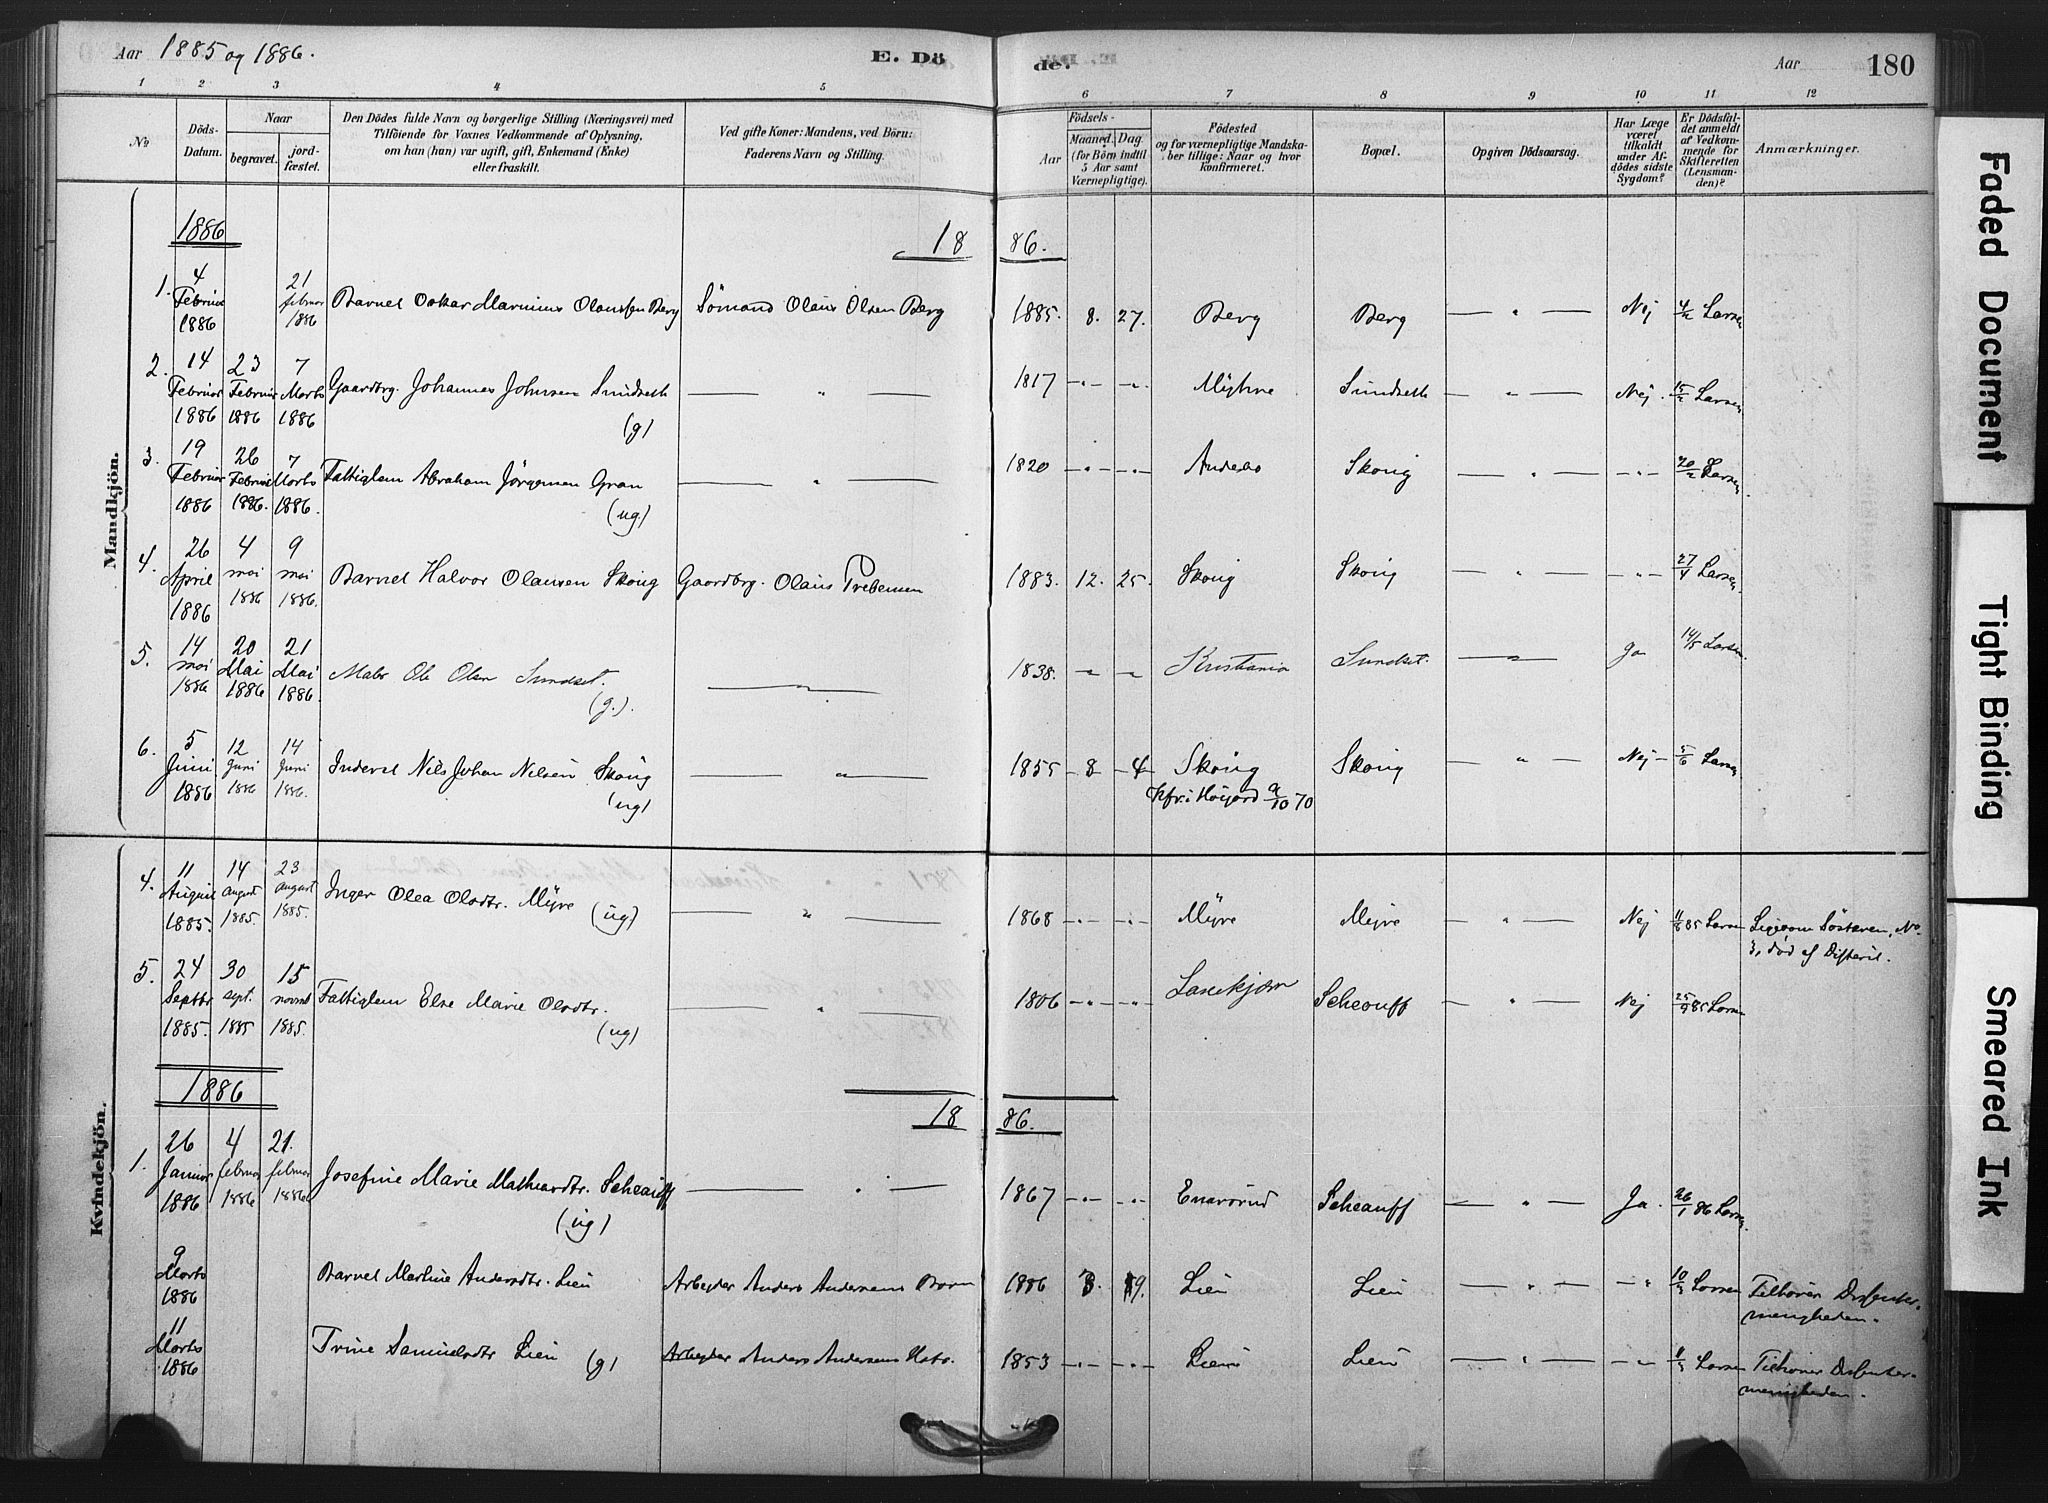 Aar 1885 og 1886. E. Dö de. Aar 180
1 2 3 4 5 6 7 8 9 10 11 12
No
Döds-Datum.
Naar
begravet. jordfæstet.
Den Dödes fulde Navn og borgerlige Stilling (Næringsvei) med
Tilföiende for Voxnes Vedkommende af Oplysning,
om han (hun) var ugift, gift, Enkemand (Enke)
eller fraskilt.
Ved gifte Koner: Mandens, ved Börn:
Faderens Navn og Stilling.
Födsels-
Aar Maaned. Dag.
(for Börn indtil
5 Aar samt
Værnepligtige).
Födested
og for værnepligtige Mandska-
ber tillige: Naar og hvor
konfirmeret.
Bopæl.
Opgiven Dödsaarsag.
Har Læge
været
tilkaldt
under Af-
dödes sidste
Sygdom?
Er Dödsfal-
det anmeldt
af Vedkom-
mende for
Skifteretten
(Lensman-
den)?
Anmærkninger.
Mandkjön.
1886 18 86.
1. 4 Februar 1886 21 februar 1886 Barnet Oskar Marinius Olaussen Berg Sömand Olaus Olsen Berg 1885. 8. 27. Berg Berg — " — Nej 4/2 Larsen
2. 14 Februar 1886 23 Februar 1886 7 Marts 1886 Gaardbrg. Johannes Johnsen Sundseth (g) — " — 1817 -"- -"- Myhre Sundseth — " — Nej. 15/2 Larsen
3. 19 Februar 1886 26 Februar 1886. 7 Marts 1886. Fattiglem Abraham Jörgensen Gran (ug) — " — 1820 -"- -"- Andebo Skoug — " — -"- 20/2 Larsen.
4. 26 April 1886 4 mai 1886 9 mai 1886. Barnet Halvor Olausen Skoug Gaardbrg. Olaus Prebensen 1883. 12. 25. Skoug Skoug — " — -"- 27/4 Larsen.
5. 14 mai 1886 20 Mai 1886 21 Mai 1886. Matr. Ole Olsen Sundset. (g.). — " — 1838. " " Kristiania Sundset. — " — Ja 14/5 Larsen.
6. 5 Juni 1886 12 Juni 1886 14 Juni 1886. Inderst Nils Johan Nilsen Skoug (ug) — " — 1855 8 4 Skoug Kfr. i Höijord 9/10 70 Skoug — " — Nej 5/6 Larsen
Kvindekjön.
4. 11 August 1885. 14 august 1885. 23 august 1885. Inger Olea Olsdtr. Myre (ug) — " — 1868 -"- -"- Myre Myre — " — Nej 11/8 85 Larsen Ligesom Söstren, No 3, död af Difterit.
5. 24 Septbr 1885. 30 sept. 1885 15 novmb 1885. Fattiglem Else Marie Olsdtr. (ug) — " — 1806 -"- -"- Scheauff — " — Nej 25/9 85 Larsen
1886 18 86.
1. 26 Januar 1886 4 februar 1886 21. februar 1886 Josefine Marie Mathiasdtr. Scheauff (ug) — " — 1867 -"- -"- Scheauff — " — Ja. 26/1 86 Larsen.
9 Marts 1886 Barnet Martine Andersdtr. Lien Arbeyder Anders Andersens Barn 1886 3. 9. Lien Lien — " — -"- 10/3 Larsen Tilhörer Dissenter-
menigheden.
11 Marts 1886 Trine Samuelsdtr Lien (g) Arbeyder Anders Andersens Hstr. 1853 -"- -"- Lien Lien — " — -"- 11/3 Larsen Tilhörer Dissenter-
menigheden.
Faded Document
Tight Binding
Smeared Ink